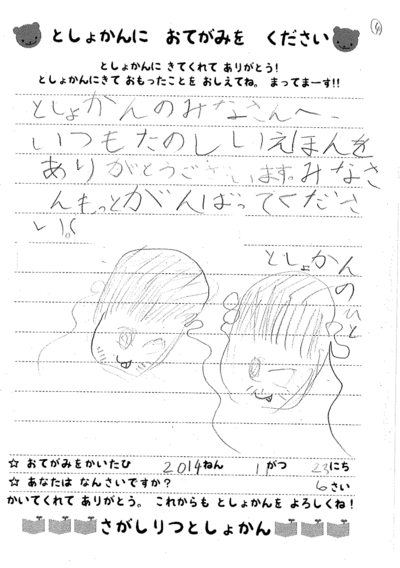 ④
としょかんに おてがみを ください
としょかんに きてくれて ありがとう!
としょかんにきて おもったことを おしえてね。 まってまーす!!
としょかんのみなさんへ
いつもたのしいえほんを
ありがとうございます。みなさ
んもっとがんばってくださ
い。
としょかん
のひと
☆ おてがみをかいたひ 2014ねん 11がつ 23にち
☆ あなたは なんさいですか? 6さい
かいてくれて ありがとう。 これからも としょかんを よろしくね!
さがしりつとしょかん